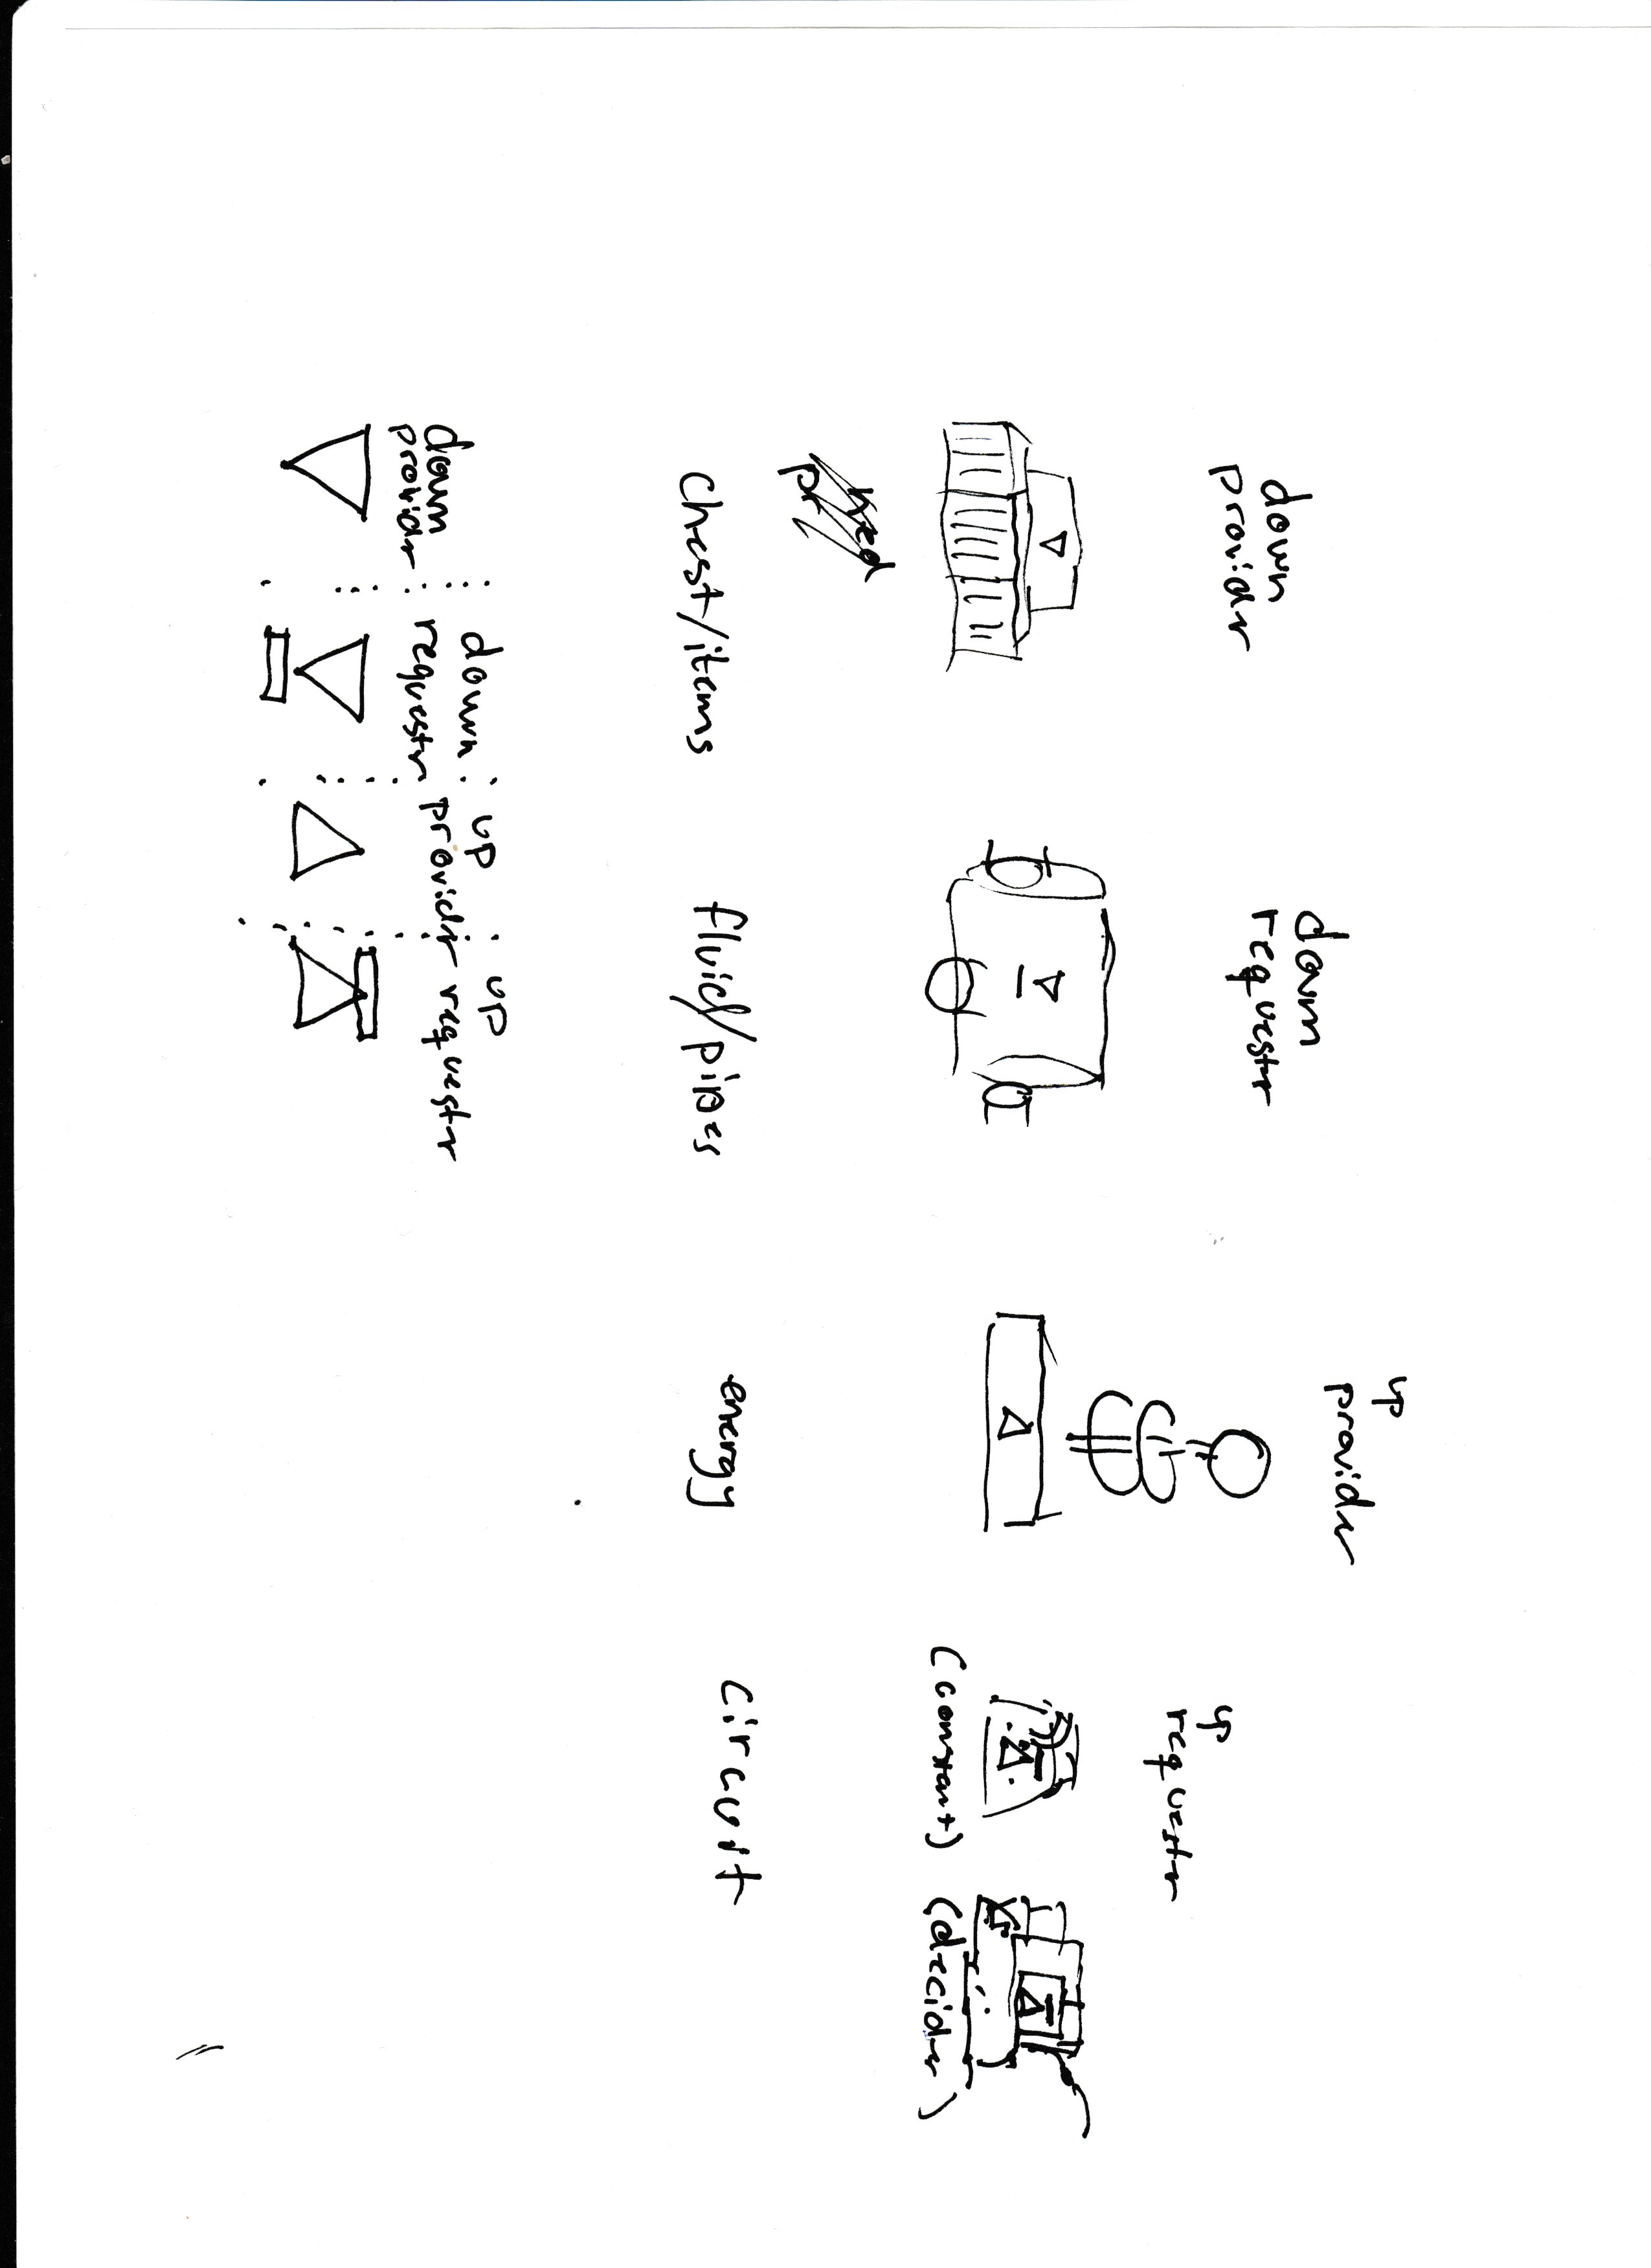 down
providr
down
requestr
up
providr
up
requestr
(constant)
(decidr)
chest/items
fluid/pipes
energy
circuit
down
providr
down
requestr
up
providr
up
requestr